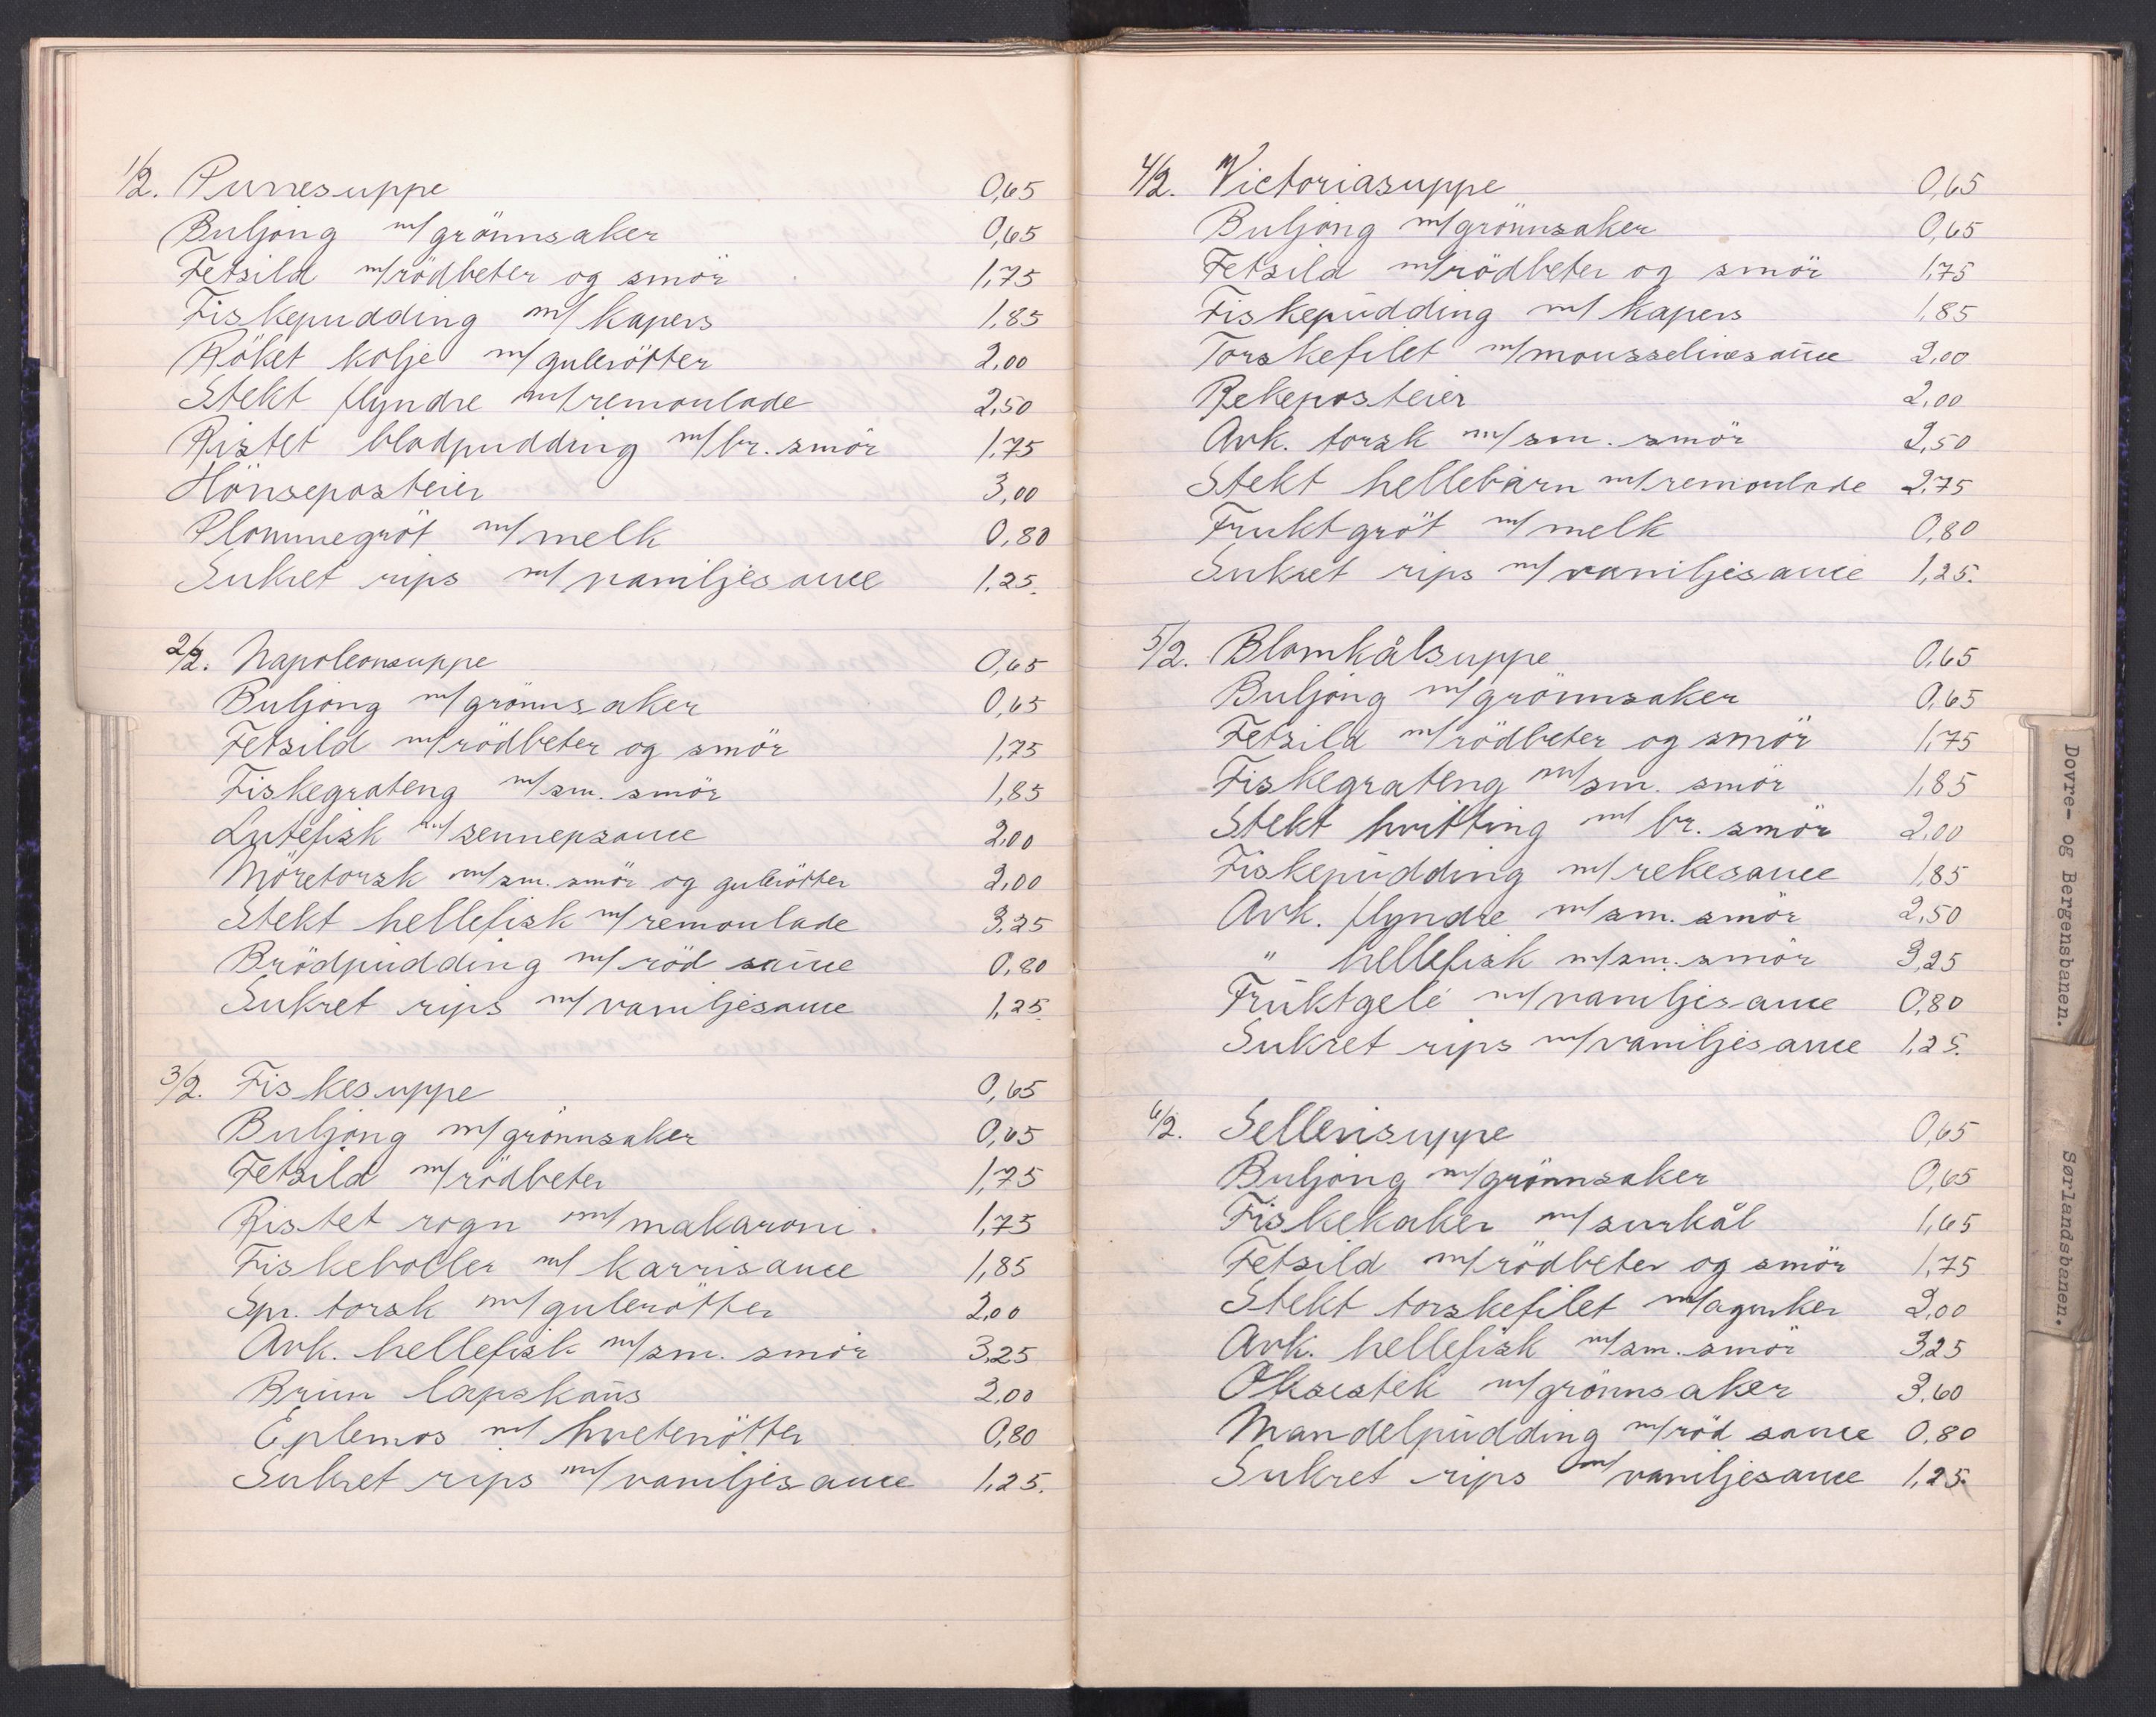 1/2. Purresuppe 0,65
Buljong m/grönnsaker 0,65
Fetsild m/rödbeter og smör 1,75
Fiskepudding m/ kapers 1,85
Röket kolje m/gulerötter 2,00
Stekt flyndre m/remoulade 2,50
Ristet blodpudding m/br. smör 1,75
Hönseposteier 3,00
Plommegröt m/melk 0,80
Sukret rips m/vaniljesauce 1.25.
2/2. Napoleonsuppe 0,65
Buljong m/grönnsaker 0,65
Fetsild m/rödbeter og smör 1,75
Fiskegrateng m/sm. smör 1,85
Lutefisk m/sennepsauce 2,00
Möretorsk m/sm. smör og gulerötter 2,00
Stekt hellefisk m/remoulade 3,25
Brödpudding m/röd sauce 0,80
Sukret rips m/vaniljesauce 1,25.
3/2. Fiskesuppe 0,65
Buljong m/grönnsaker 0,65
Fetsild m/rödbeter 1,75
Ristet rogn m/makaroni. 1,75
Fiskeboller m/ karrisauce 1,85
Spr. torsk m/gulerötter 2,00
Avk. hellefisk m/sm. smör 3,25
Brun lapskaus 2,00
Eplemos m/ hvetenötter 0,80
Sukret rips m/vaniljesauce 1,25.
4/2. Victoriasuppe 0,65
Buljong m/grönnsaker 0,65
Fetsild m/rödbeter og smör 1,75
Fiskepudding m/ kapers 1,85
Torskefilet m/mousselinesauce 2,00
Rekeposteier 2,00
Avk. torsk m/sm. smör 2,50
Stekt hellebarn m/remoulade 2,75
Fruktgröt m/melk 0,80
Sukret rips m/vaniljesauce 1,25.
5/2. Blomkålsuppe 0,65
Buljong m/grönnsaker 0,65
Fetsild m/rödbeter og smör 1,75
Fiskegrateng m/sm. smör 1,85
Stekt hvitting m/ br. smör 2,00
Fiskepudding m/rekesauce 1,85
Avk. flyndre m/sm. smör 2,50
" hellefisk m/sm. smör 3,25
Fruktgelé m/vaniljesauce 0,80
Sukret rips m/vaniljesauce 1,25.
6/2. Sellerisuppe 0,65
Buljong m/grönnsaker 0,65
Fiskekaker m/surkål 1,65
Fetsild m/rödbeter og smör 1,75
Stekt torskefilet m/agurker 2,00
Avk. hellefisk m/sm. smör 3,25
Oksestek m/grönnsaker 3,60
Mandelpudding m/röd sauce 0,80
Sukret rips m/vaniljesauce 1,25.
Dovre- og Bergensbanen.
Sørlandsbanen.